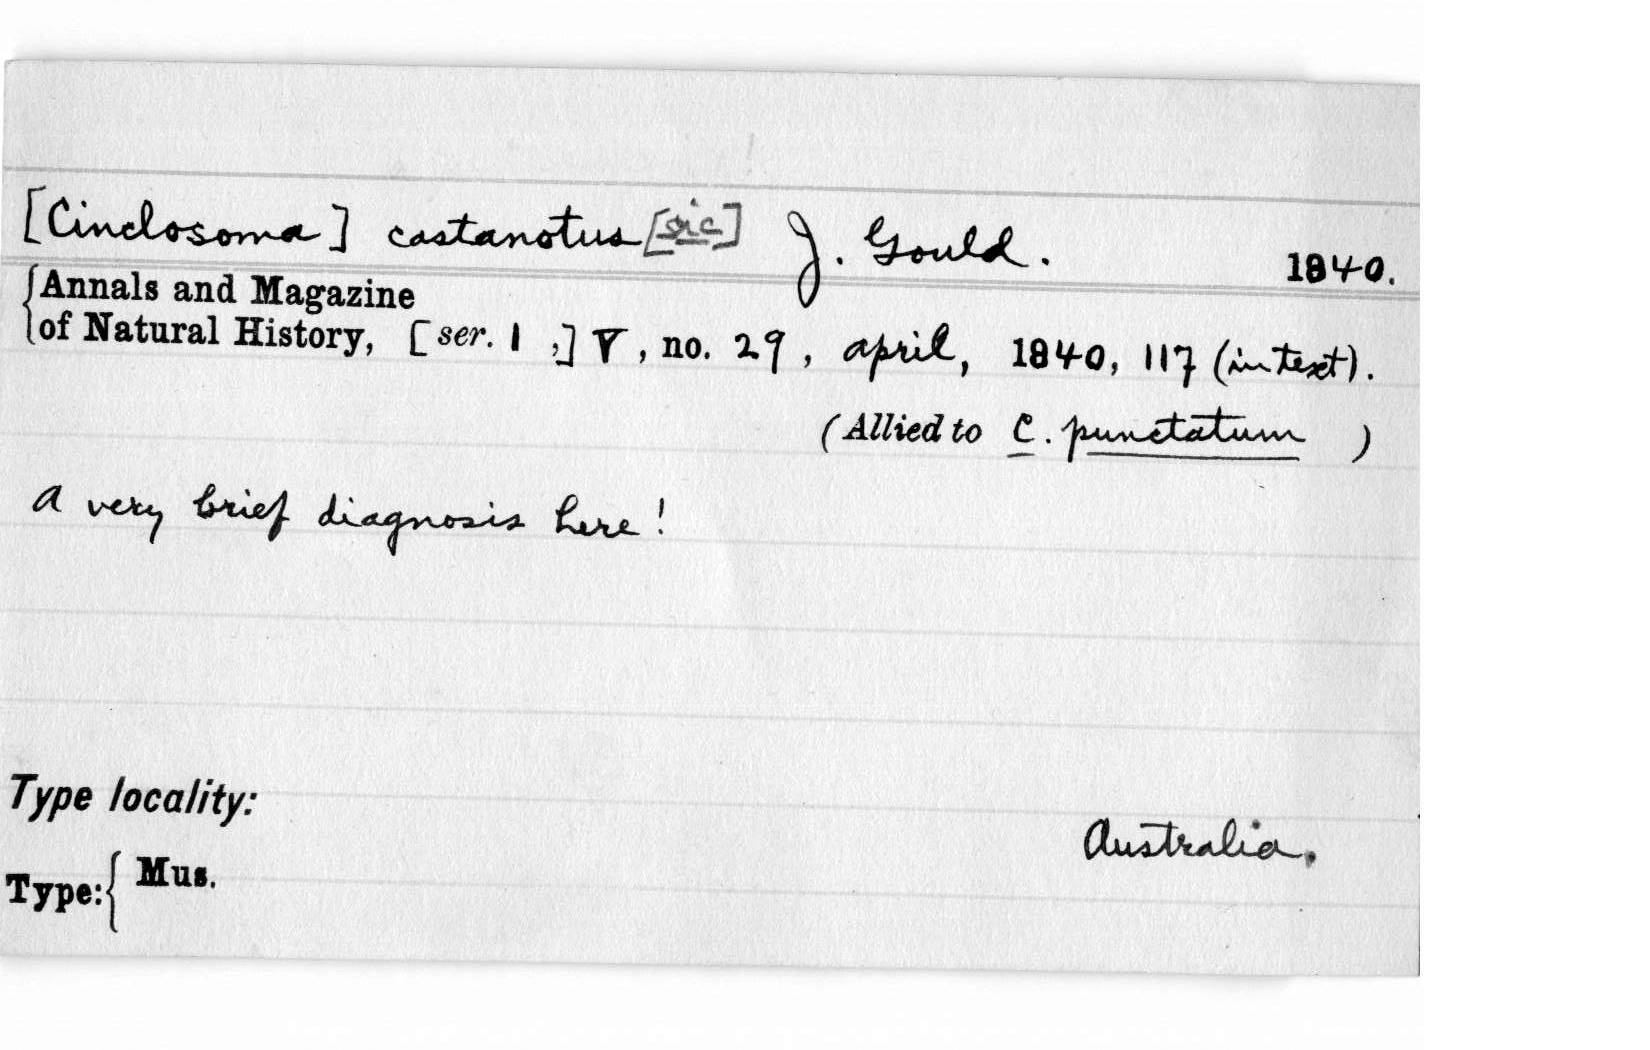 [Cinclosoma] castanotus [sic] J. Gould. 1840.
Annals and Magazine
of Natural History, [ser. 1,] V, no. 29, april, 1840, 117 (in text).
(Allied to C. punctatum )
A very brief diagnosis here!
Type locality:
Australia.
Type: Mus.